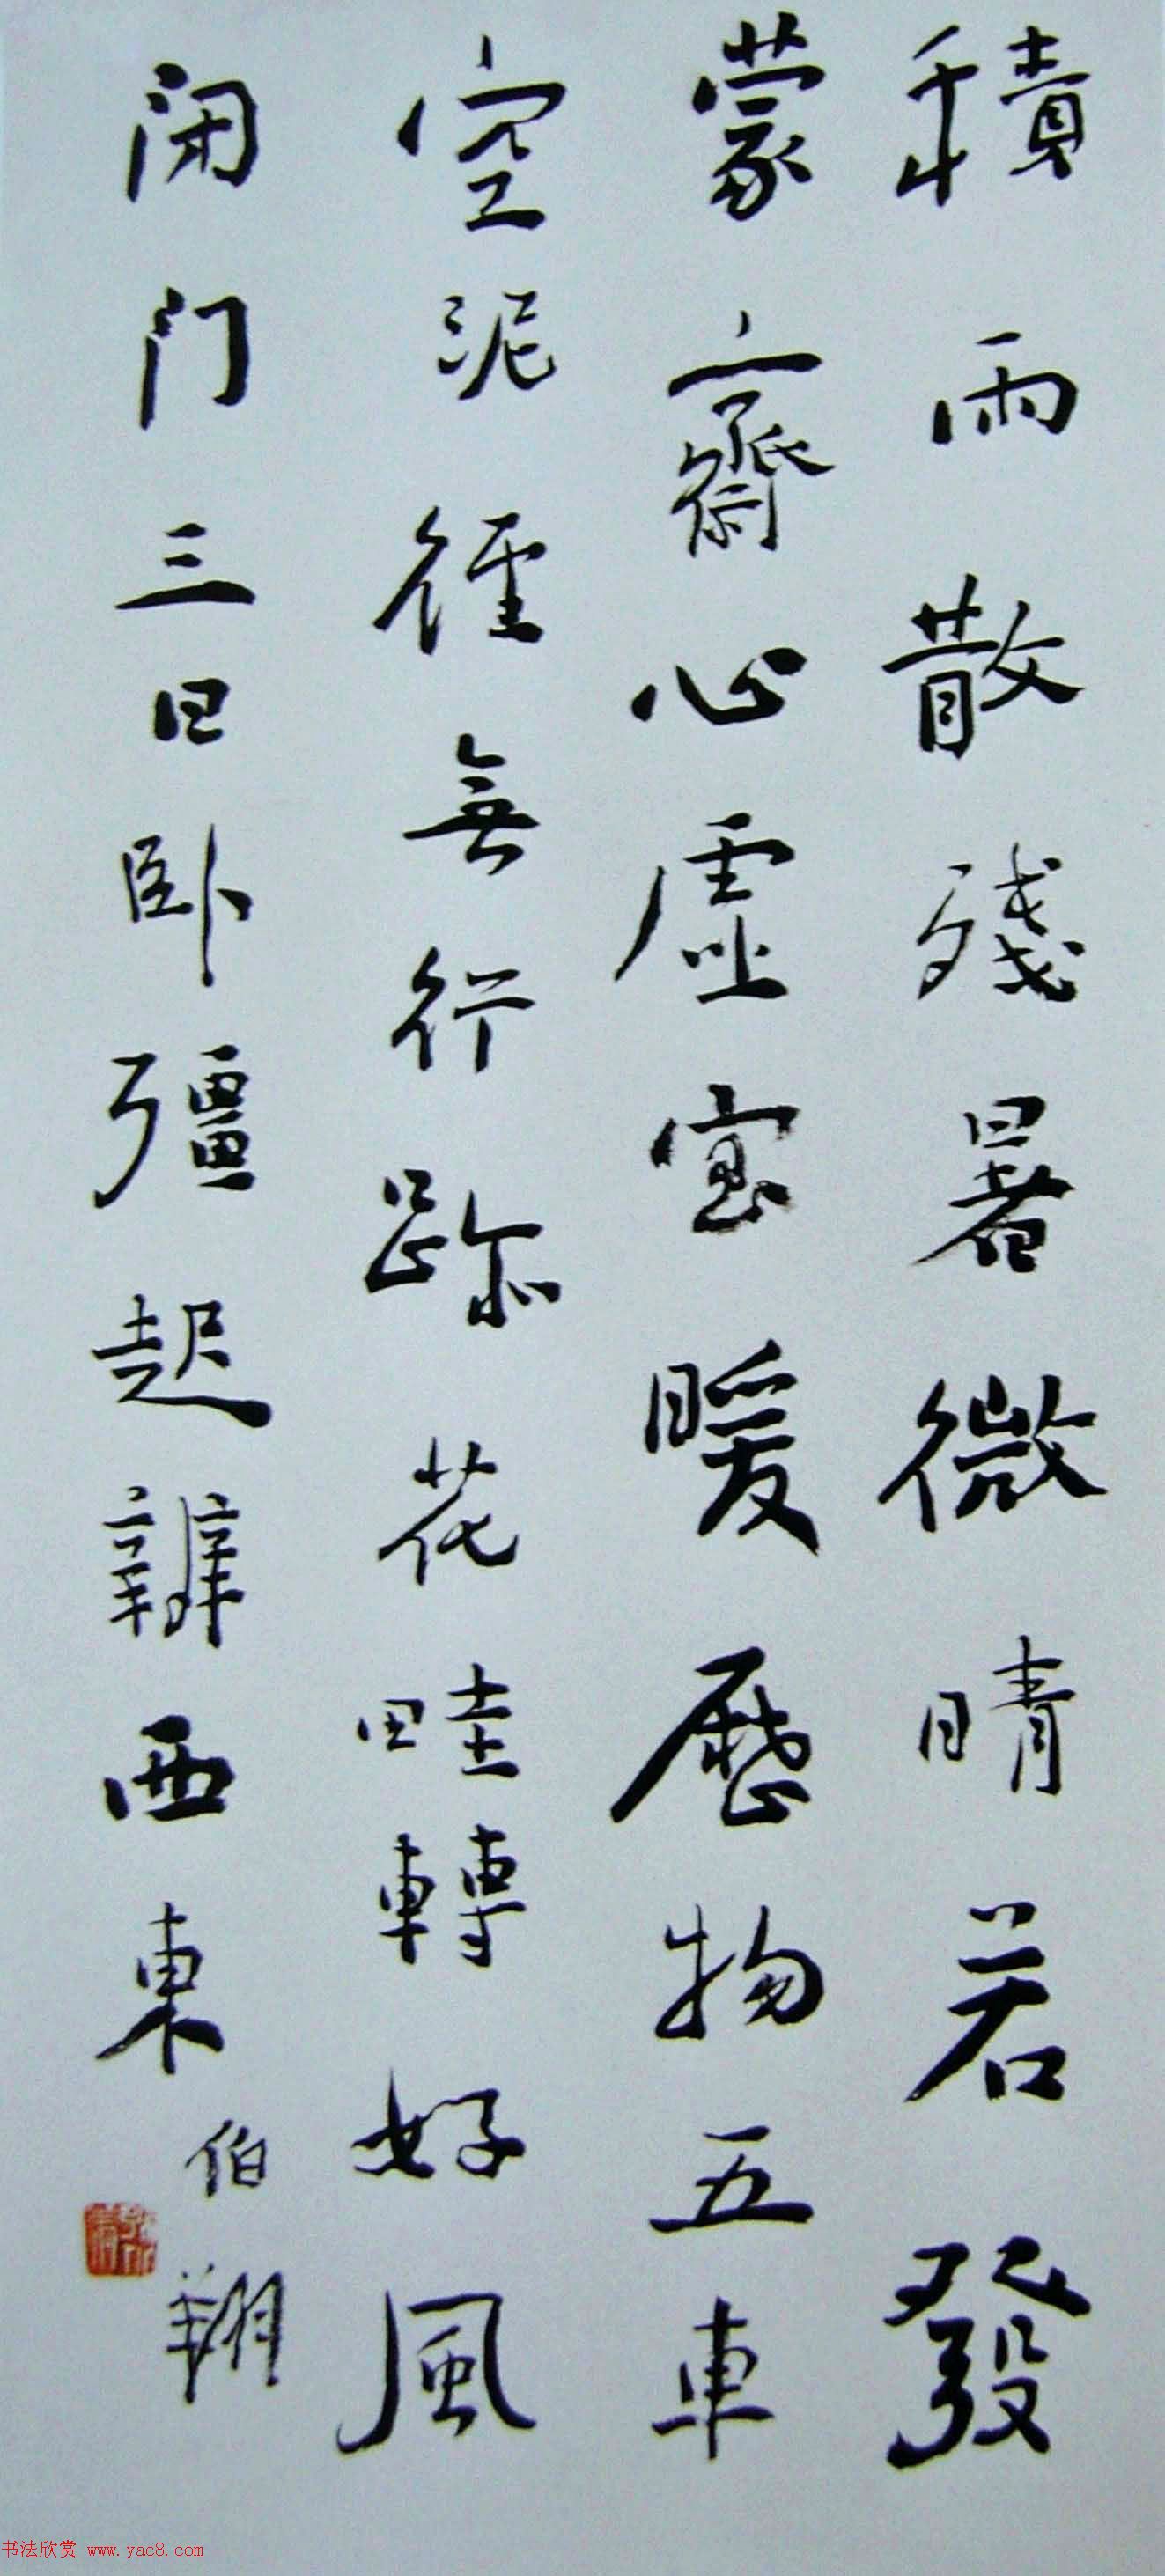 積雨散殘暑微晴若發
蒙齋心虛室暖歷物五車
空泥徑無行跡花畦轉好風
閉門三日卧彊起辨西東
伯翔
书法欣赏 www.yac8.com